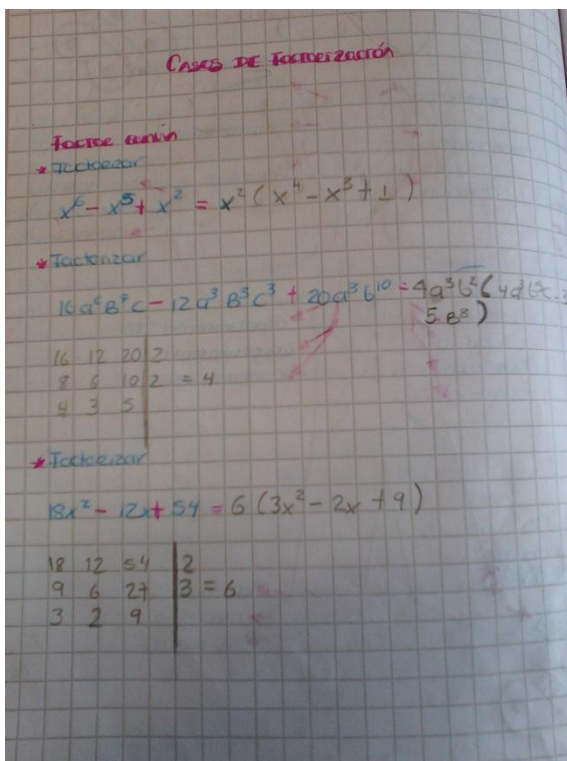 Casos de Factorización
Factor común
* Factorizar
x⁶ - x⁵ + x² = x² (x⁴ - x³ + 1)
* Factorizar
16a⁶B⁷c - 12a³B³c³ + 20a³b¹⁰ = 4a³b²(
5B⁸)
16 12 20 | 2
8 6 10 | 2 = 4
4 3 5
* Factorizar
18x² - 12x + 54 = 6 (3x² - 2x + 9)
18 12 54 | 2
9 6 27 | 3 = 6
3 2 9